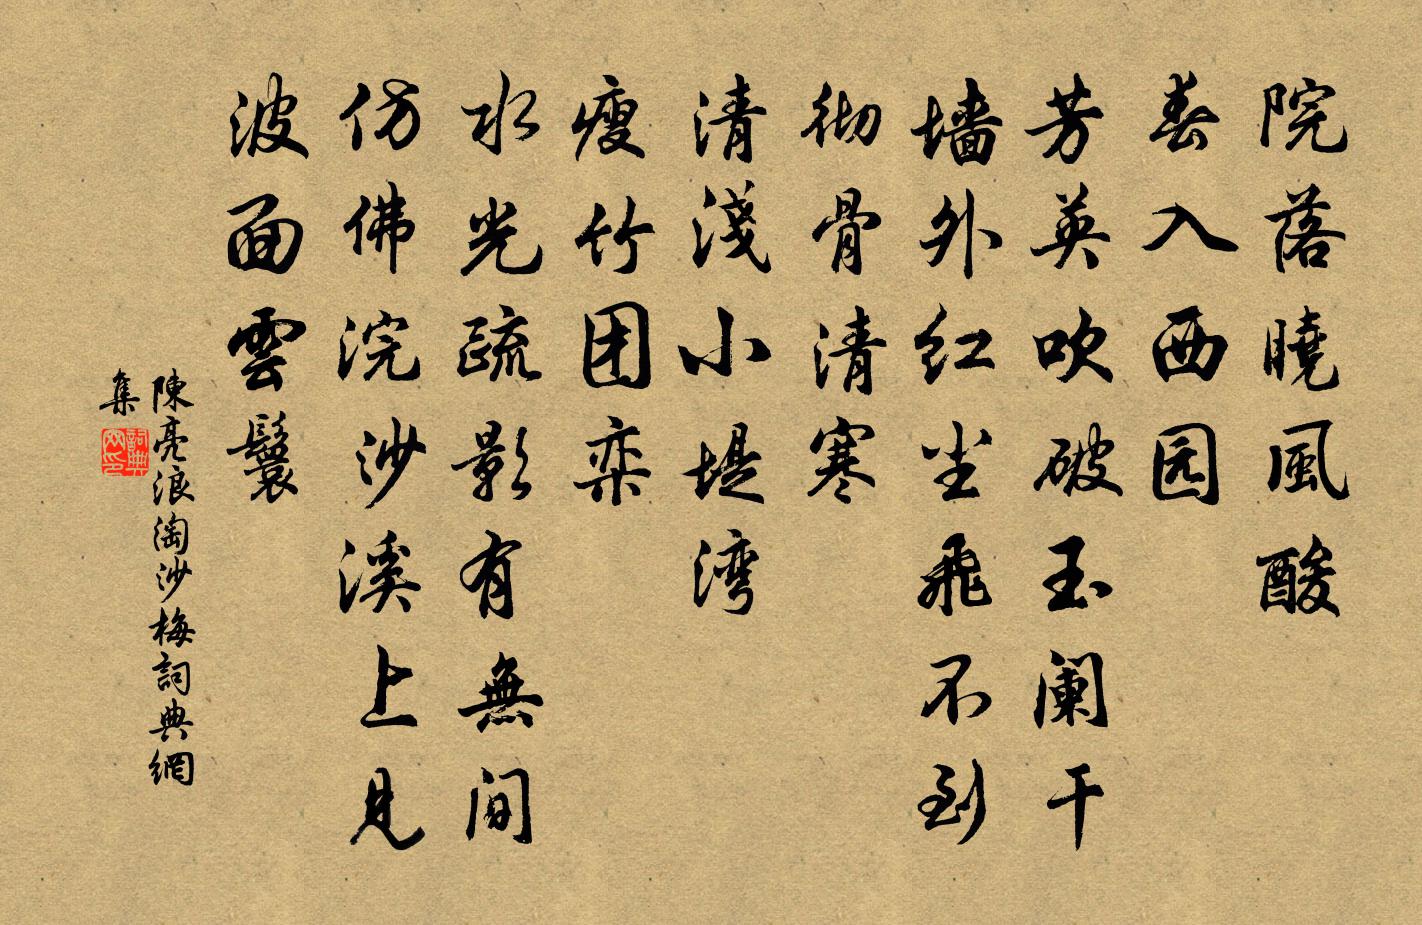 院落曉風酸
春入西园
芳英吹破玉阑干
墙外红尘飛不到
彻骨清寒
清淺小堤湾
瘦竹团栾
水光疏影有無间
仿佛浣沙溪上見
波面雲鬟
陳亮浪淘沙梅詞典網
集
詞典网印